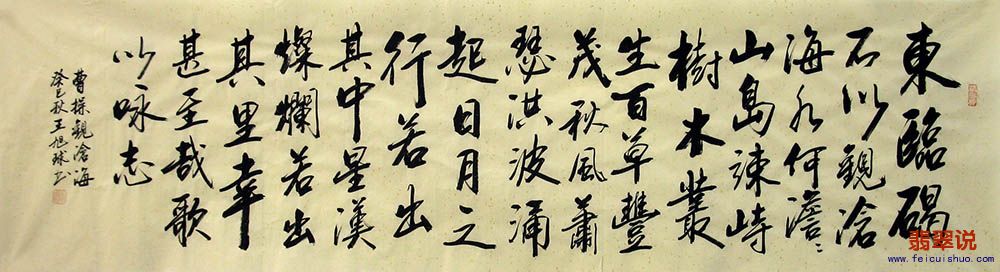 東臨碣
石以觀滄
海水何澹〻
山島竦峙
樹木叢
生百草豐
茂秋風蕭
瑟洪波涌
起日月之
行若出
其中星漢
燦爛若出
其里幸
甚至哉歌
以咏志
曹操觀滄海
癸巳秋王旭球书
翡翠说
www.feicuishuo.com